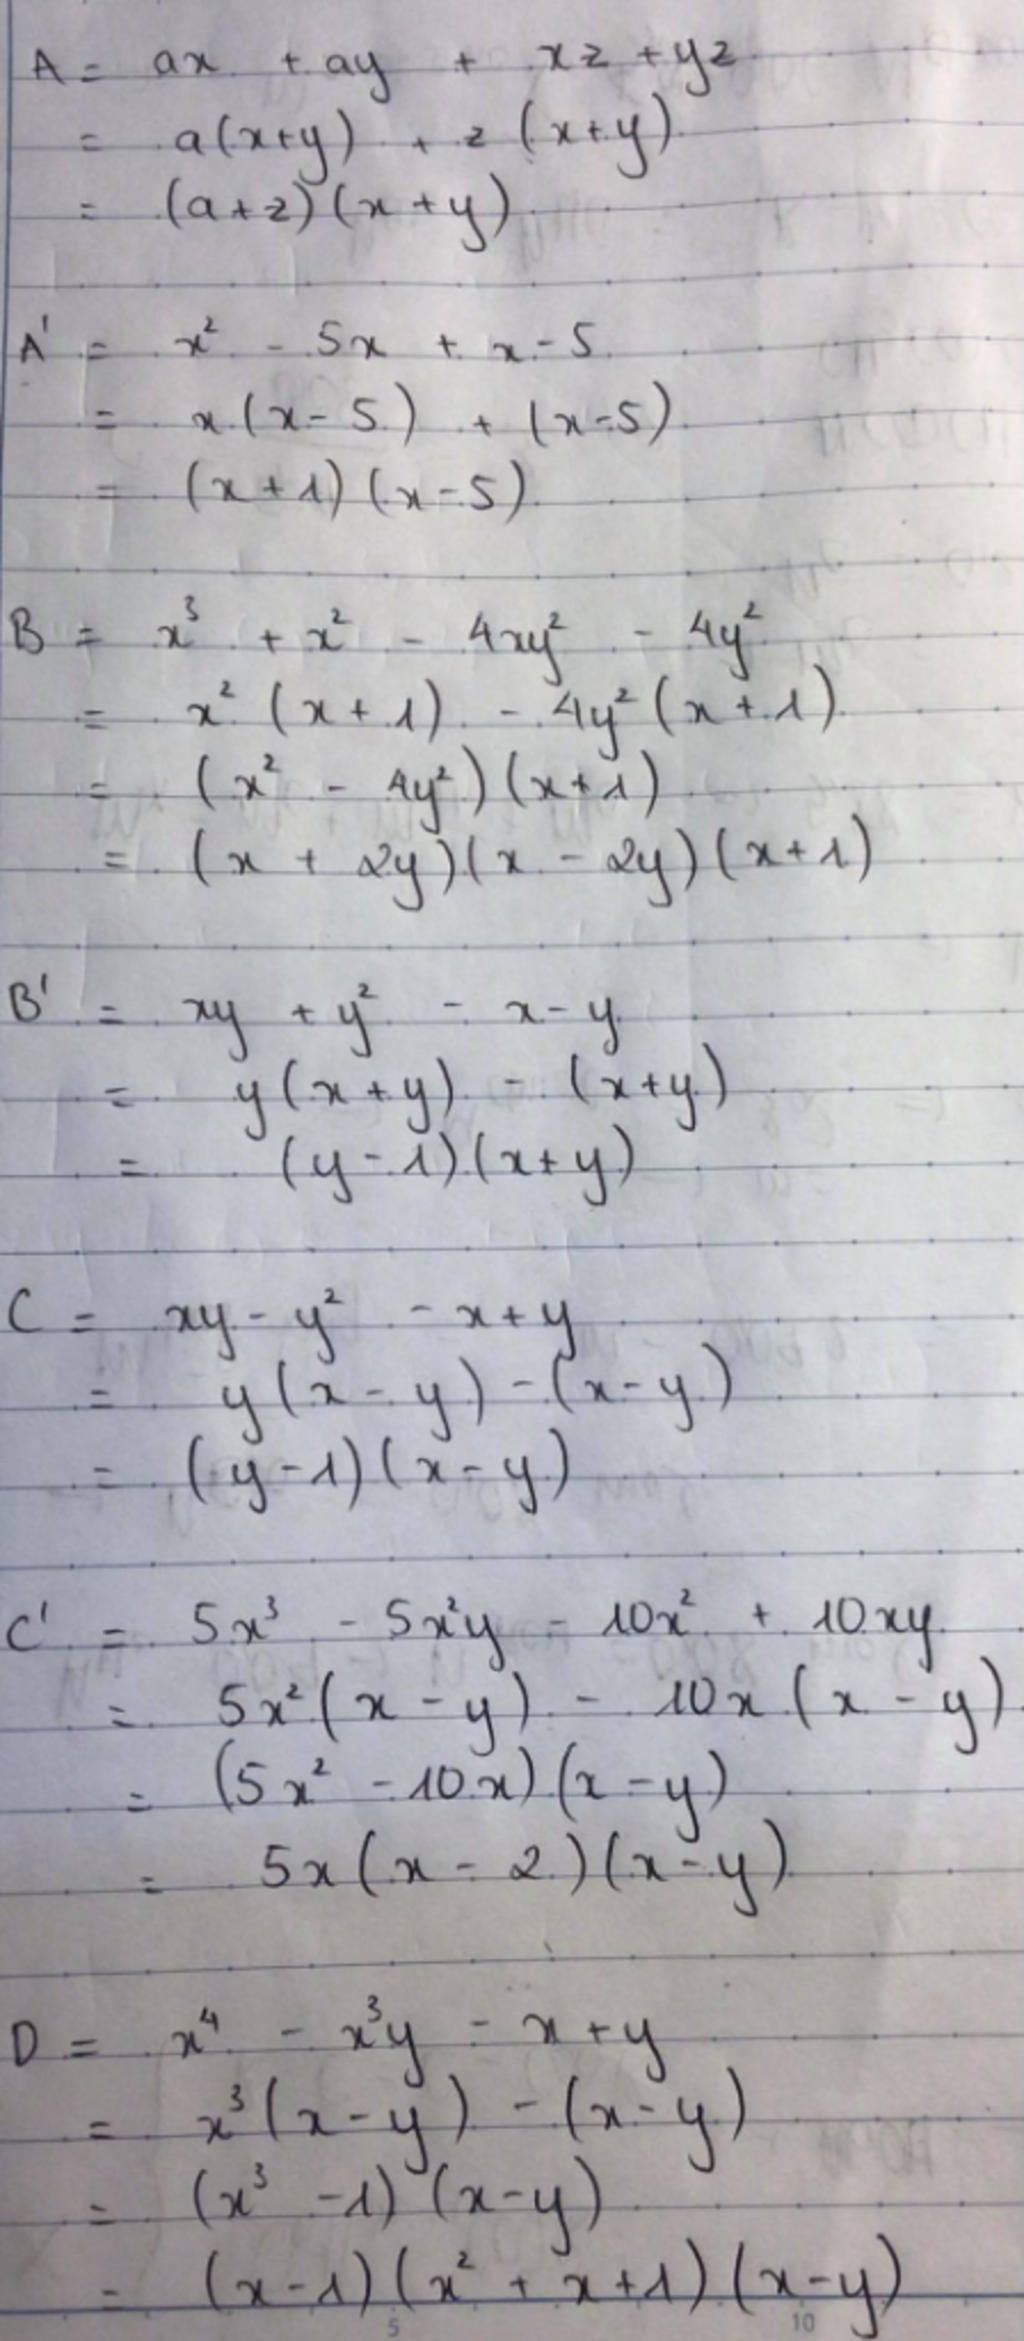 A = ax + ay + xz + yz
= a(x+y) + z(x+y)
= (a+z)(x+y)
A' = x² - 5x + x - 5
= x(x-5) + (x-5)
= (x+1)(x-5)
B = x³ + x² - 4xy² - 4y²
= x²(x+1) - 4y²(x+1)
= (x² - 4y²)(x+1)
= (x + 2y)(x - 2y)(x+1)
B' = xy + y² - x - y
= y(x+y) - (x+y)
= (y-1)(x+y)
C = xy - y² - x + y
= y(x-y) - (x-y)
= (y-1)(x-y)
C' = 5x³ - 5x²y - 10x² + 10xy
= 5x²(x-y) - 10x(x-y)
= (5x² - 10x)(x-y)
= 5x(x-2)(x-y)
D = x⁴ - x³y - x + y
= x³(x-y) - (x-y)
= (x³ - 1)(x-y)
= (x-1)(x² + x + 1)(x-y)
5 10